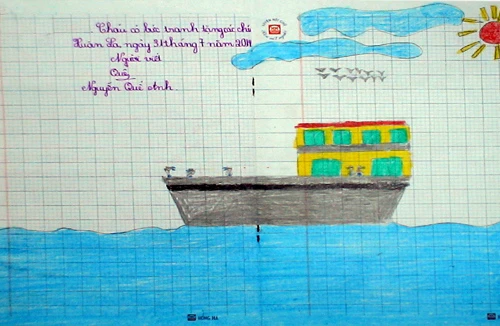 Cháu có bức tranh tặng các chú
Xuân La, ngày 31 tháng 7 năm 2011
Người vẽ
Quế
Nguyễn Quế Anh.
HỒNG HÀ